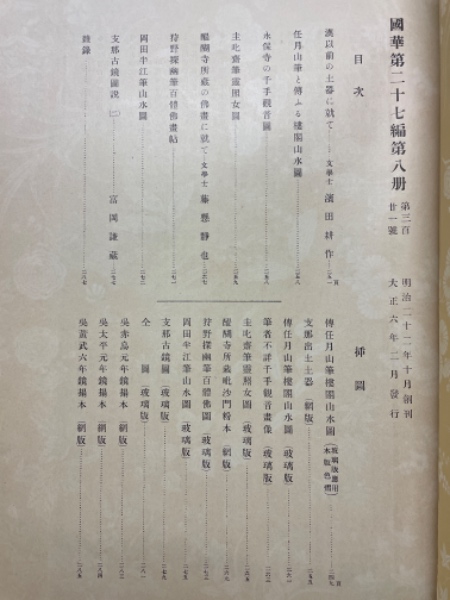 國華第二十七編第八册 第三百廿一號
明治二十二年十月創刊
大正六年二月發行
目次
漢以前の土器に就て 文學士 濱田耕作 二五一頁
任月山筆と傳ふる樓閣山水圖 二五八
永保寺の千手觀音圖 二五八
主𠮟齋筆靈照女圖 二五九
醍醐寺所藏の佛畫に就て 文學士 藤懸靜也 二六七
狩野探幽筆百體佛畫帖 二七一
岡田半江筆山水圖 二七二
支那古鏡圖説(二) 富岡謙藏 二七七
雜錄 二八七
挿圖
傳任月山筆樓閣山水圖 (玻璃版應用木版色摺) 二四九頁
支那出土土器 (網版) 二五五
傳任月山筆樓閣山水圖 (玻璃版) 二六一
筆者不詳千手觀音畫像 (玻璃版) 二六三
主𠮟齋筆靈照女圖 (玻璃版) 二六五
醍醐寺所藏毗沙門粉本 (網版) 二六九
狩野探幽筆百體佛圖 (玻璃版) 二七三
岡田半江筆山水圖 (玻璃版) 二七五
支那古鏡圖 (玻璃版) 二七九
仝 圖 (玻璃版) 二八一
吳赤烏元年鏡搨本 (網版) 二八三
吳太平元年鏡搨本 (網版) 二八四
吳黃武六年鏡搨本 (網版) 二八五